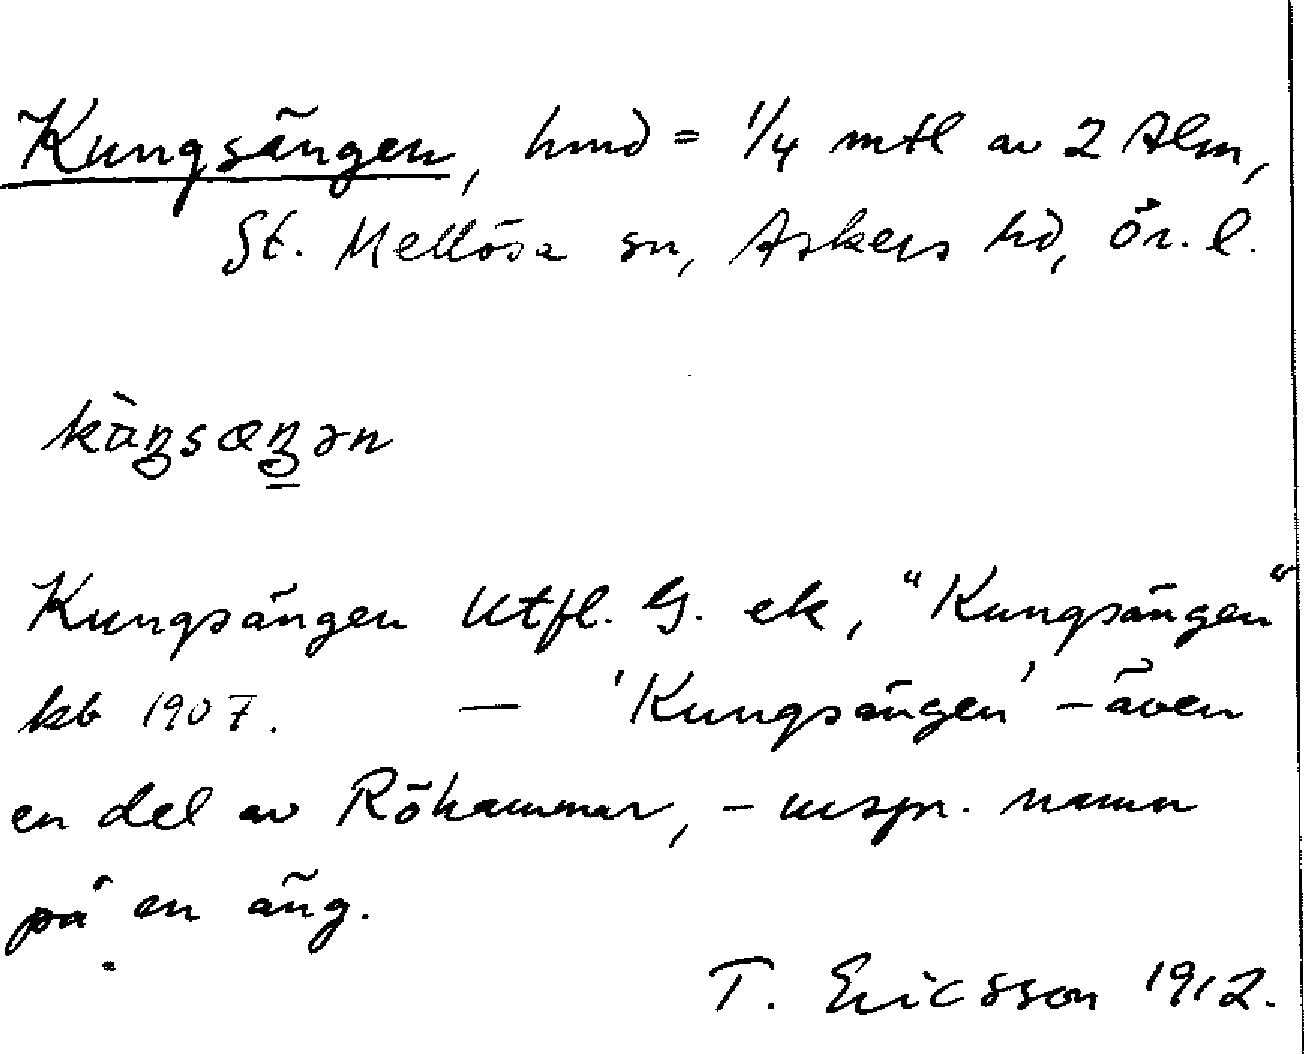 Kungsängen, hmd = 1/4 mtl av 2 Alm,
St. Mellösa sn, Askers hd, Ör. l.
kàŋsæŋən
Kungsängen Utfl. G. ek, "Kungsängen"
kb 1907. — 'Kungsängen' – även
en del av Röhammar, – urspr. namn
på en äng.
T. Ericsson 1912.